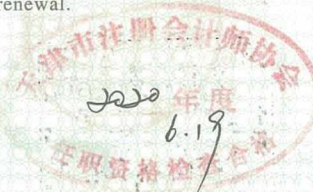 renewal.
天津市注册会计师协会
2020 年度
6.19
任职资格检查合格